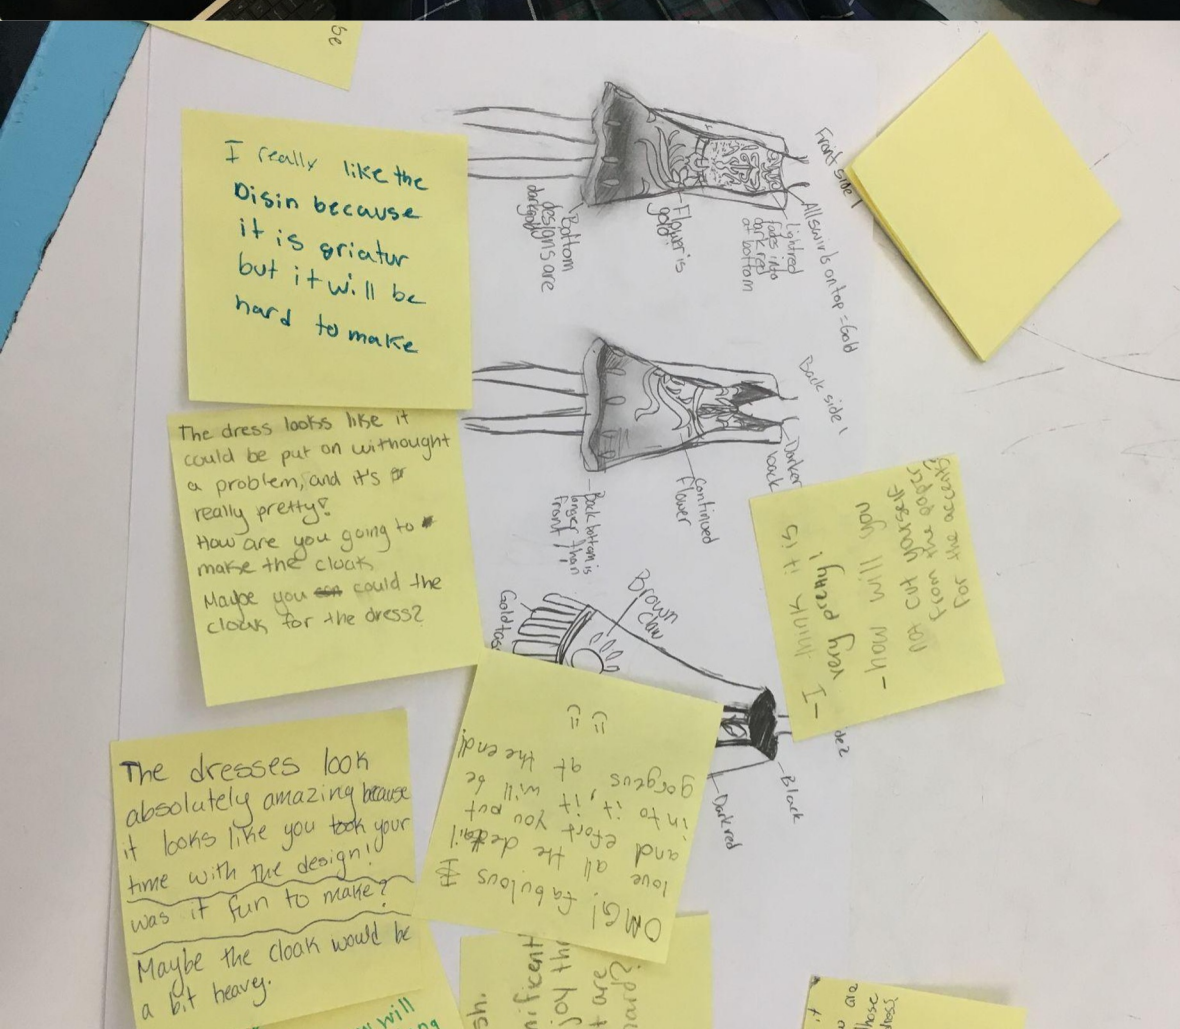 be
I really like the
Disin because
it is griatur
but it will be
hard to make
The dress looks like it
could be put on withought
a problem, and it's
really pretty!
How are you going to
make the cloak
Maybe you could the
cloak for the dress?
The dresses look
absolutely amazing because
it looks like you took your
time with the design!
was it fun to make?
Maybe the cloak would be
a bit heavy.
Front side 1
All swirls on top = Gold
Light red
fades into
dark red
at bottom
Flower is
gold
Bottom
designs are
dark gold
Back side 1
Darker
back
continued
Flower
Back bottom is
longer than
front!
Brown
claw
Gold tas
de 2
Black
Dark red
- I think it is
very pretty!
- how will you
not cut yourself
from the paper
for the accents
OMG! fabulous
love all the detail
and efort you put
in to it, it will be
gorgeus at the end!
sh.
nificent
joy th
t are
hard?
will
ng
it
are
those